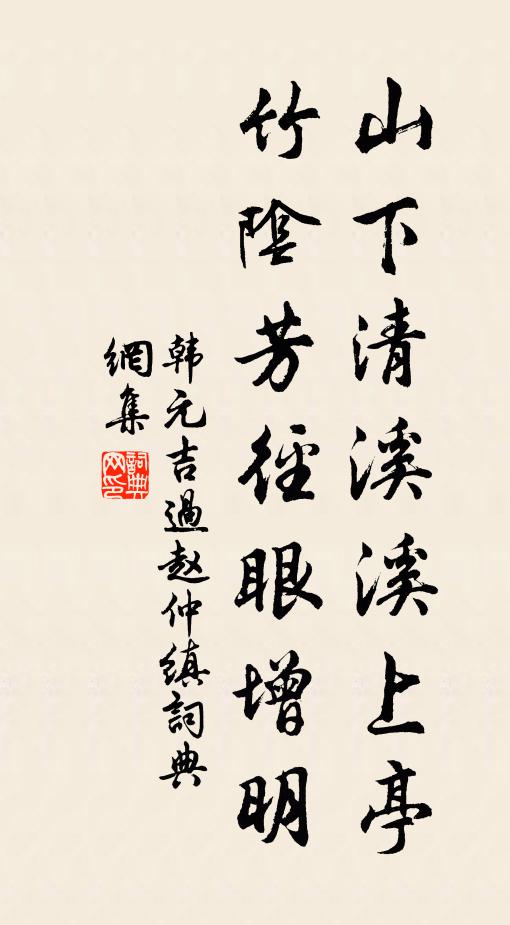 山下清溪溪上亭
竹陰芳徑眼增明
韩元吉過赵仲鎮詞典
網集
詞典
网印